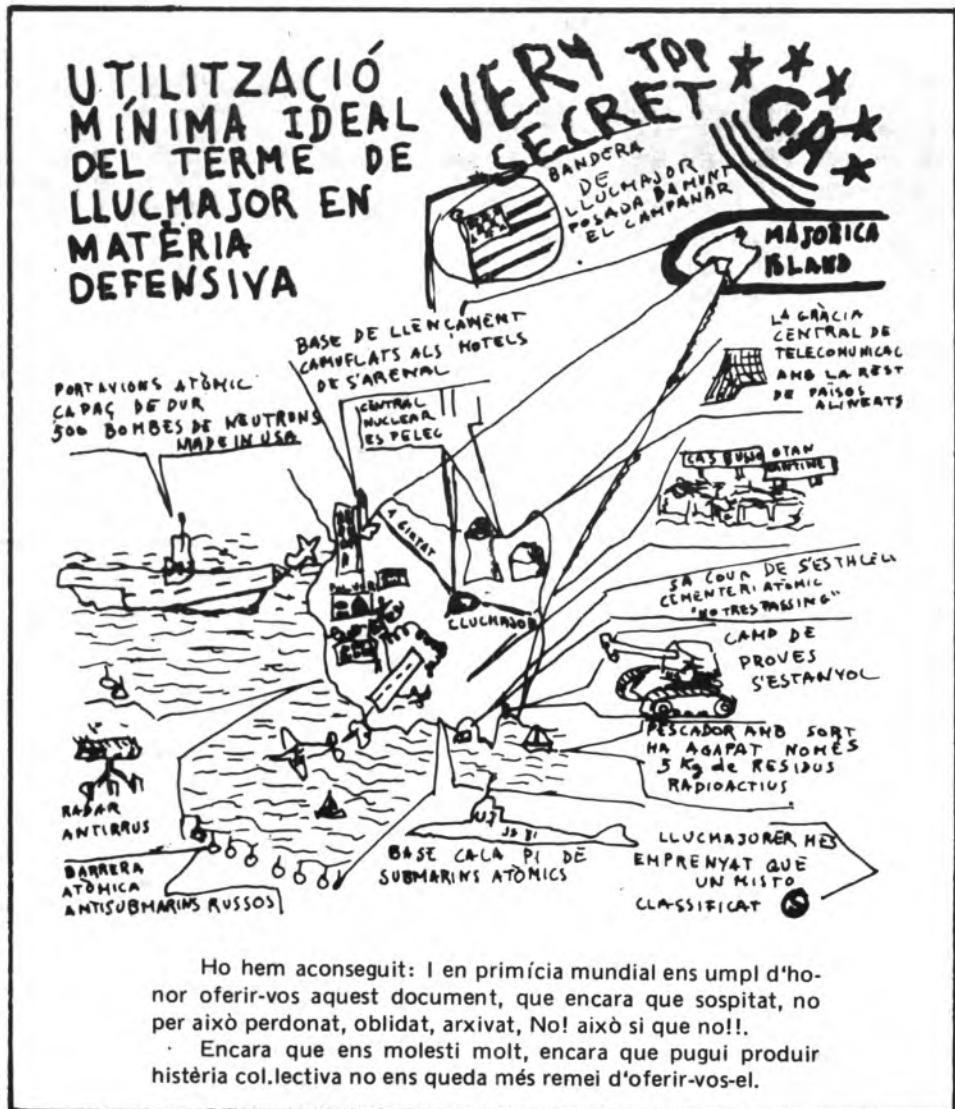 UTILITZACIÓ
MÍNIMA IDEAL
DEL TERME DE
LLUCMAJOR EN
MATÈRIA
DEFENSIVA
VERY TOP
SECRET
BANDERA
DE
LLUCMAJOR
POSADA DAMUNT
EL CAMPANAR
MAJORICA
ISLAND
BASE DE LLENÇAMENT
CAMUFLATS ALS HOTELS
DE S'ARENAL
PORTAVIONS ATÒMIC
CAPAÇ DE DUR
500 BOMBES DE NEUTRONS
MADE IN USA
CENTRAL
NUCLEAR
ES PELEC
LA GRÀCIA
CENTRAL DE
TELECOMUNICAC
AMB LA REST
DE PAÏSOS
ALINEATS
OTAN
CANTINE
A CIUTAT
LLUCMAJOR
CEMENTERI ATÒMIC
"NO TRESPASSING"
CAMP DE
PROVES
S'ESTANYOL
PESCADOR AMB SORT
HA AGAFAT NOMÉS
5 Kg de RESIDUS
RADIOACTIUS
RADAR
ANTIRRUS
BARRERA
ATÒMICA
ANTISUBMARINS RUSSOS
BASE CALA PI DE
SUBMARINS ATÒMICS
LLUCMAJORER MES
EMPRENYAT QUE
UN MISTO
CLASSIFICAT
Ho hem aconseguit: I en primícia mundial ens umpl d'ho-
nor oferir-vos aquest document, que encara que sospitat, no
per això perdonat, oblidat, arxivat, No! això si que no!!.
Encara que ens molesti molt, encara que pugui produir
histèria col.lectiva no ens queda més remei d'oferir-vos-el.